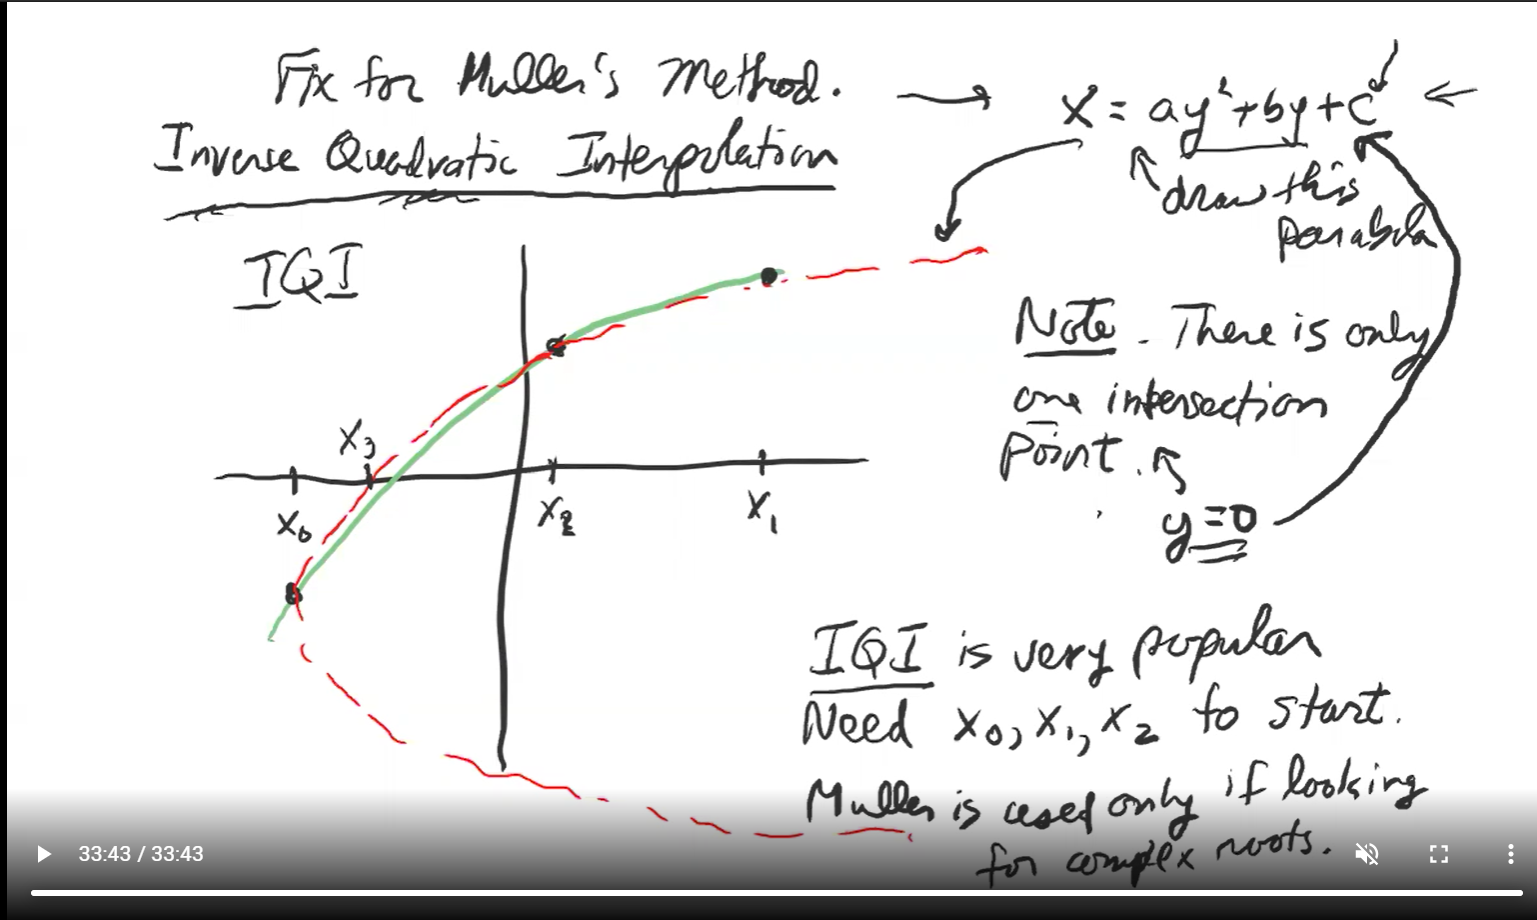 Fix for Muller's Method.
Inverse Quadratic Interpolation
x = ay² + by + c
draw this
parabola
IQI
Note. There is only
one intersection
point.
y = 0
x₃
x₀
x₂
x₁
IQI is very popular
Need x₀, x₁, x₂ to start.
Muller is used only if looking
for complex roots.
33:43 / 33:43